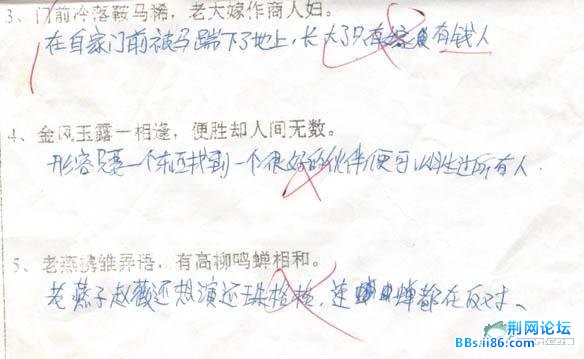 3、门前冷落鞍马稀，老大嫁作商人妇。
在自家门前被马踹下了地上，长大了只有 有钱人
4、金风玉露一相逢，便胜却人间无数。
形容只要一个东西找到一个很好的伙伴，便可以 过所有人.
5、老燕携雏弄语，有高柳鸣蝉相和。
老燕子赵薇还想演还珠格格，连 蝉都在反对。
荆网论坛
BBs.ii86.com